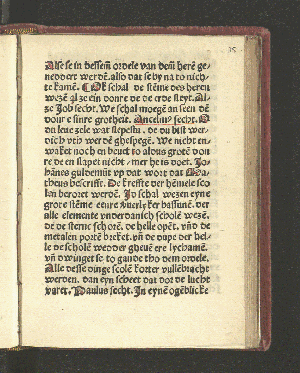 Alse se in dessem ordele van dem herē ge-
neddert werdē. also dat se by na to nich-
te kamē. Ok schal de stēme des heren
wezē alze ein donre de de erde sleyt. Al-
ze Job secht. We schal mogē an seen dē
donre sinre grotheit. Ancelm9 secht. O
du leue zele wat slepestu. de du bist wer-
dich vtb werdē ghespegē. We nicht en-
waket noch en bruct to alous grotē don
re de en slapet nicht mer he is doet. Jo-
hanes guldemūt vp dat wort dat Ma-
theus bescrifft. De kreffte der hēmele sco
lan beroret werden. Jo schal wezen eyne
grote stēme eenre vreeslyker bassunē. der
alle elemente vnderdanich scholē wezē.
de de sterne schorē. de helle opēt. vn̄ de
metalen portē breket. vn̄ de vupe der hel-
le de scholē wedder gheuē ere lychamē.
vn̄ dwinget se to gande tho dem ordele.
Alle desse dinge scolē korter vullēbracht
werden. dan eyn schreet dat dor de lucht
varet. Paulus secht. In eynē ogēblicke